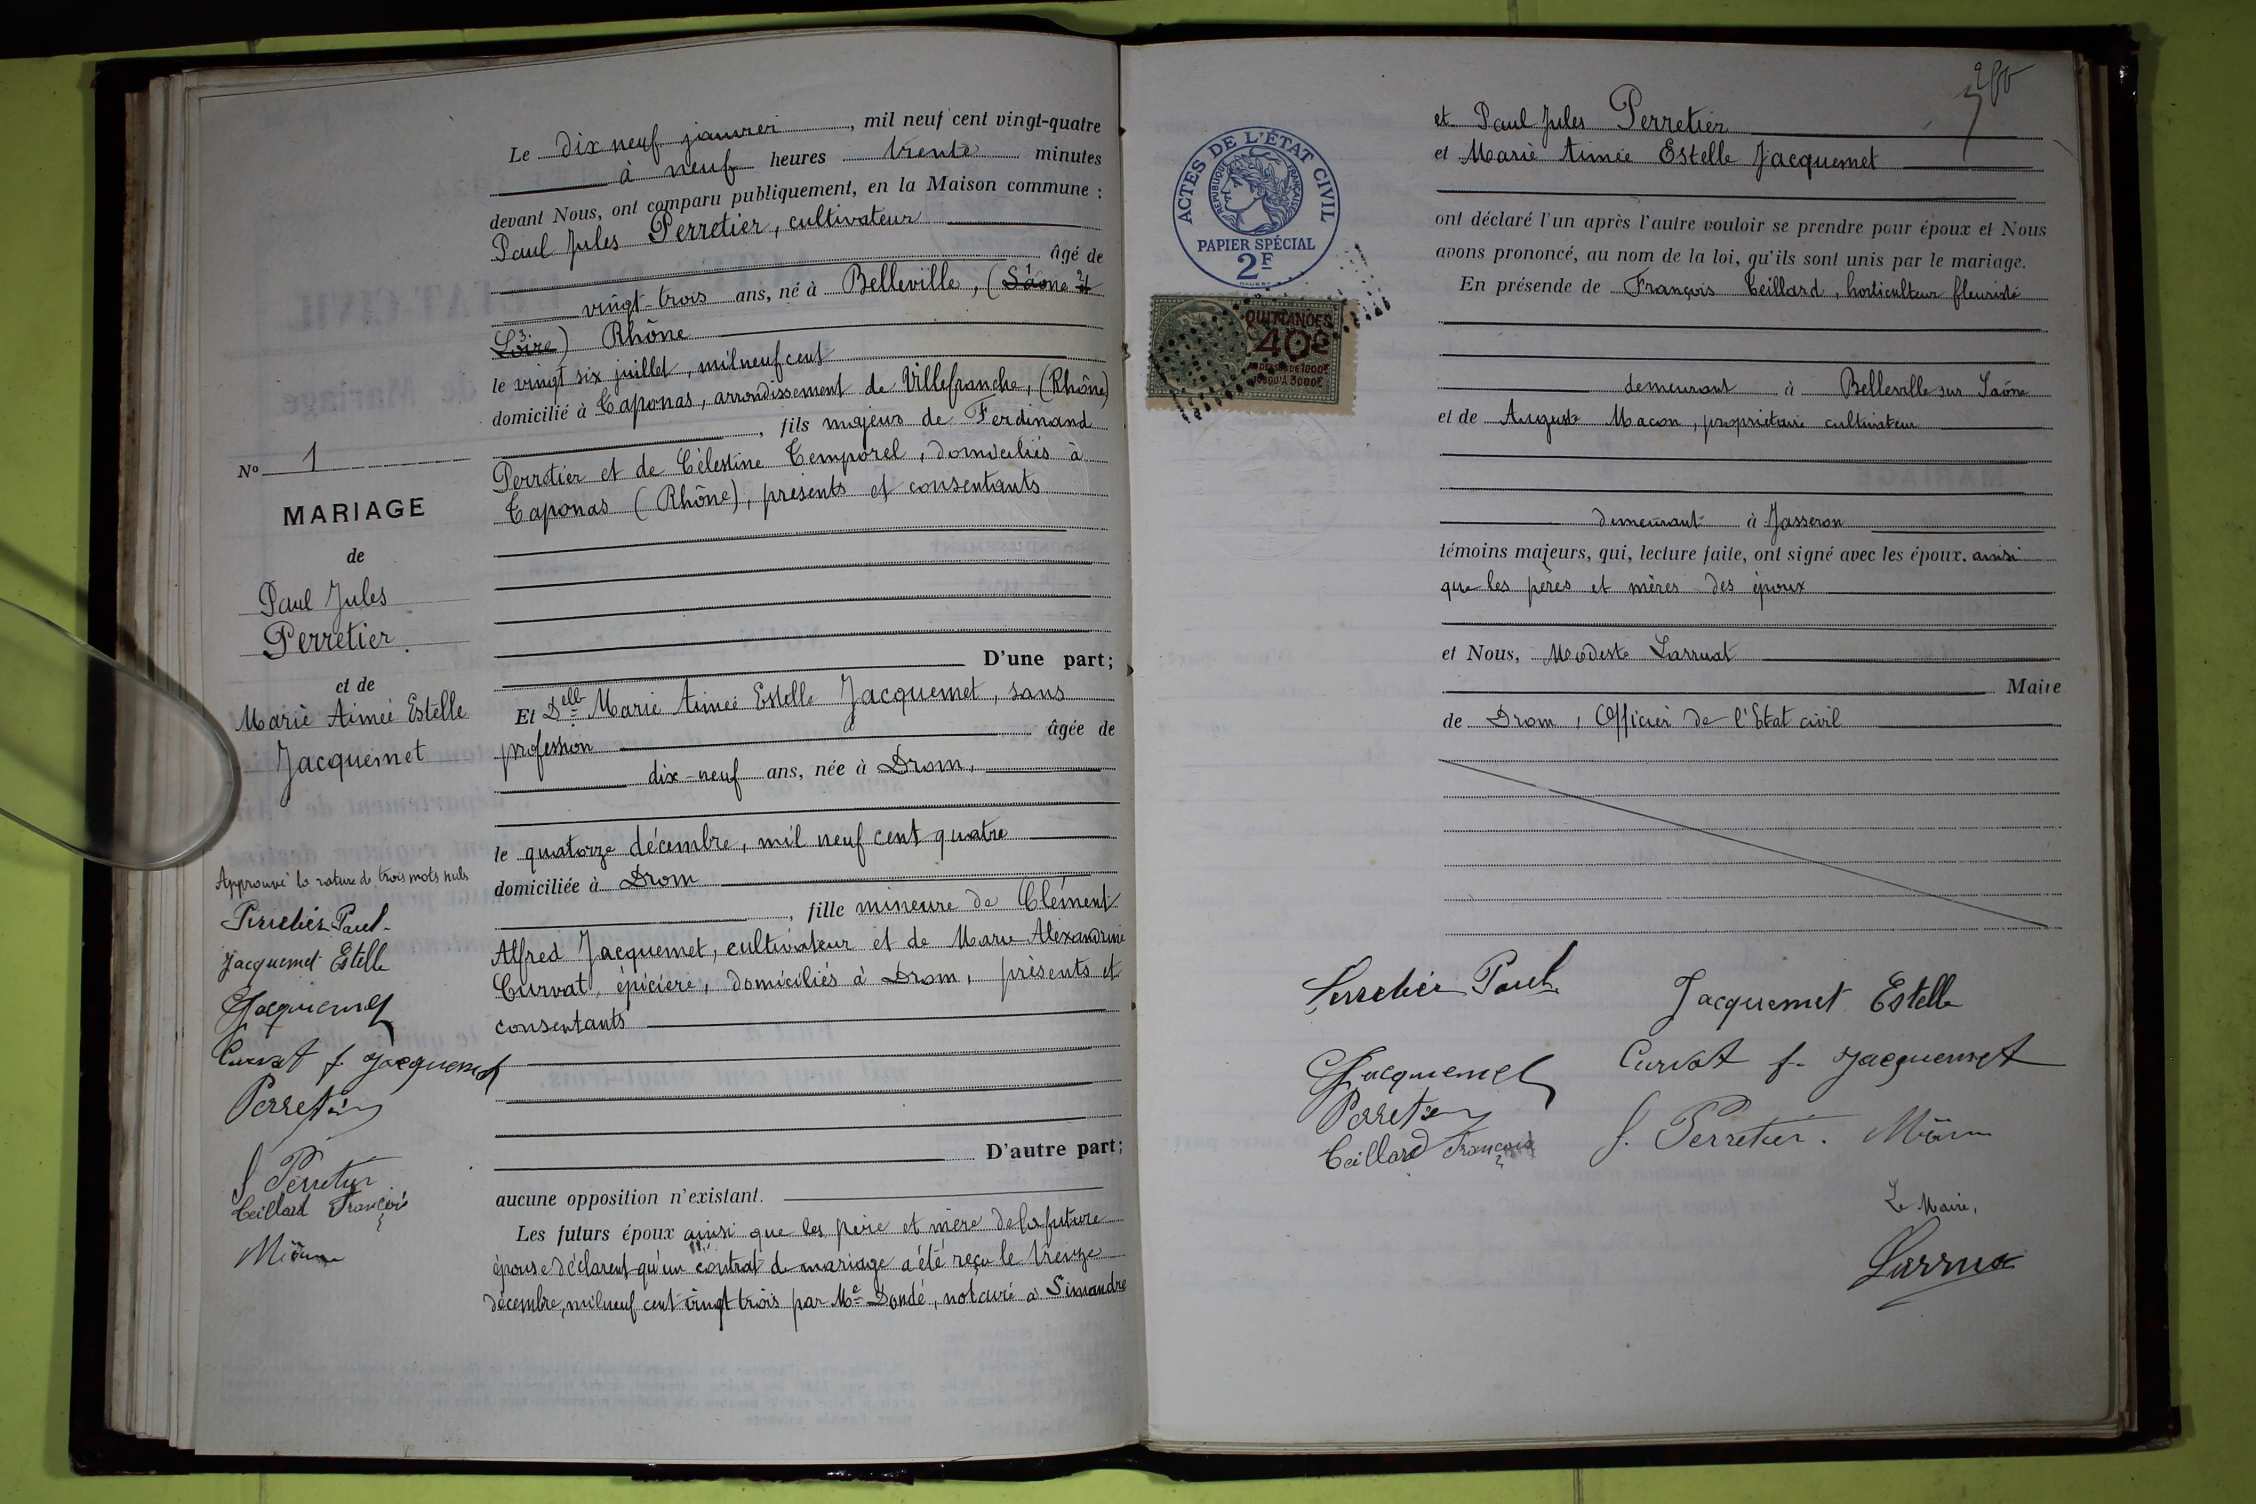 Le dix neuf janvier, mil neuf cent vingt-quatre
à neuf heures trente minutes
devant Nous, ont comparu publiquement, en la Maison commune :
Paul Jules Perretier, cultivateur
âgé de
vingt-trois ans, né à Belleville, (Saône et
Loire) Rhône
le vingt six juillet, mil neuf cent
domicilié à Taponas, arrondissement de Villefranche, (Rhône)
, fils majeur de Ferdinand
Perretier et de Célestine Temporel, domiciliés à
Taponas (Rhône), présents et consentants
D'une part;
Et Delle Marie Aimée Estelle Jacquemet, sans
profession âgée de
dix-neuf ans, née à Drom,
le quatorze décembre, mil neuf cent quatre
domiciliée à Drom
, fille mineure de Clément
Alfred Jacquemet, cultivateur et de Marie Alexandrine
Curvat, épicière, domiciliés à Drom, présents et
consentants
D'autre part;
aucune opposition n'existant.
Les futurs époux ainsi que les père et mère de la future
épouse déclarent qu'un contrat de mariage a été reçu le treize
décembre, mil neuf cent vingt trois par Me Dondé, notaire à Simandre
No 1
MARIAGE
de
Paul Jules
Perretier.
et de
Marie Aimée Estelle
Jacquemet
Approuvé la rature de trois mots nuls
Perretier Paul
Jacquemet Estelle
Jacquemet
Curvat f. Jacquemet
Perretier
J Perretier
Teillard François
ACTES DE L'ÉTAT CIVIL
RÉPUBLIQUE FRANÇAISE
PAPIER SPÉCIAL
2F
QUITTANCES
40c
et Paul Jules Perretier
et Marie Aimée Estelle Jacquemet
ont déclaré l'un après l'autre vouloir se prendre pour époux et Nous
avons prononcé, au nom de la loi, qu'ils sont unis par le mariage.
En présende de François Teillard, horticulteur fleuriste
demeurant à Belleville sur Saône
et de Auguste Macon, propriétaire cultivateur
demeurant à Jasseron
témoins majeurs, qui, lecture faite, ont signé avec les époux. ainsi
que les pères et mères des époux
et Nous, Modeste Larruat
Maire
de Drom, Officier de l'Etat civil
Perretier Paul
Jacquemet Estelle
Jacquemet
Curvat f. Jacquemet
Perretier
J. Perretier.
Teillard François
Le Maire,